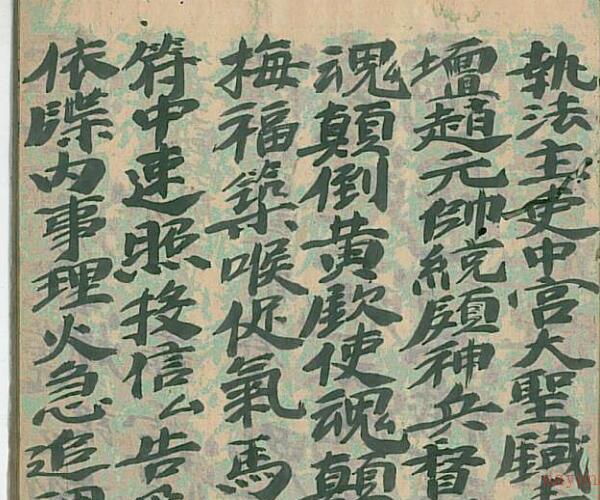 執法主吏中宮大聖
壇趙元帥統領神兵督
魂顛倒黃使魂顛
梅福築喉促氣馬
符中速照投信厶告
依牒內事理火急追